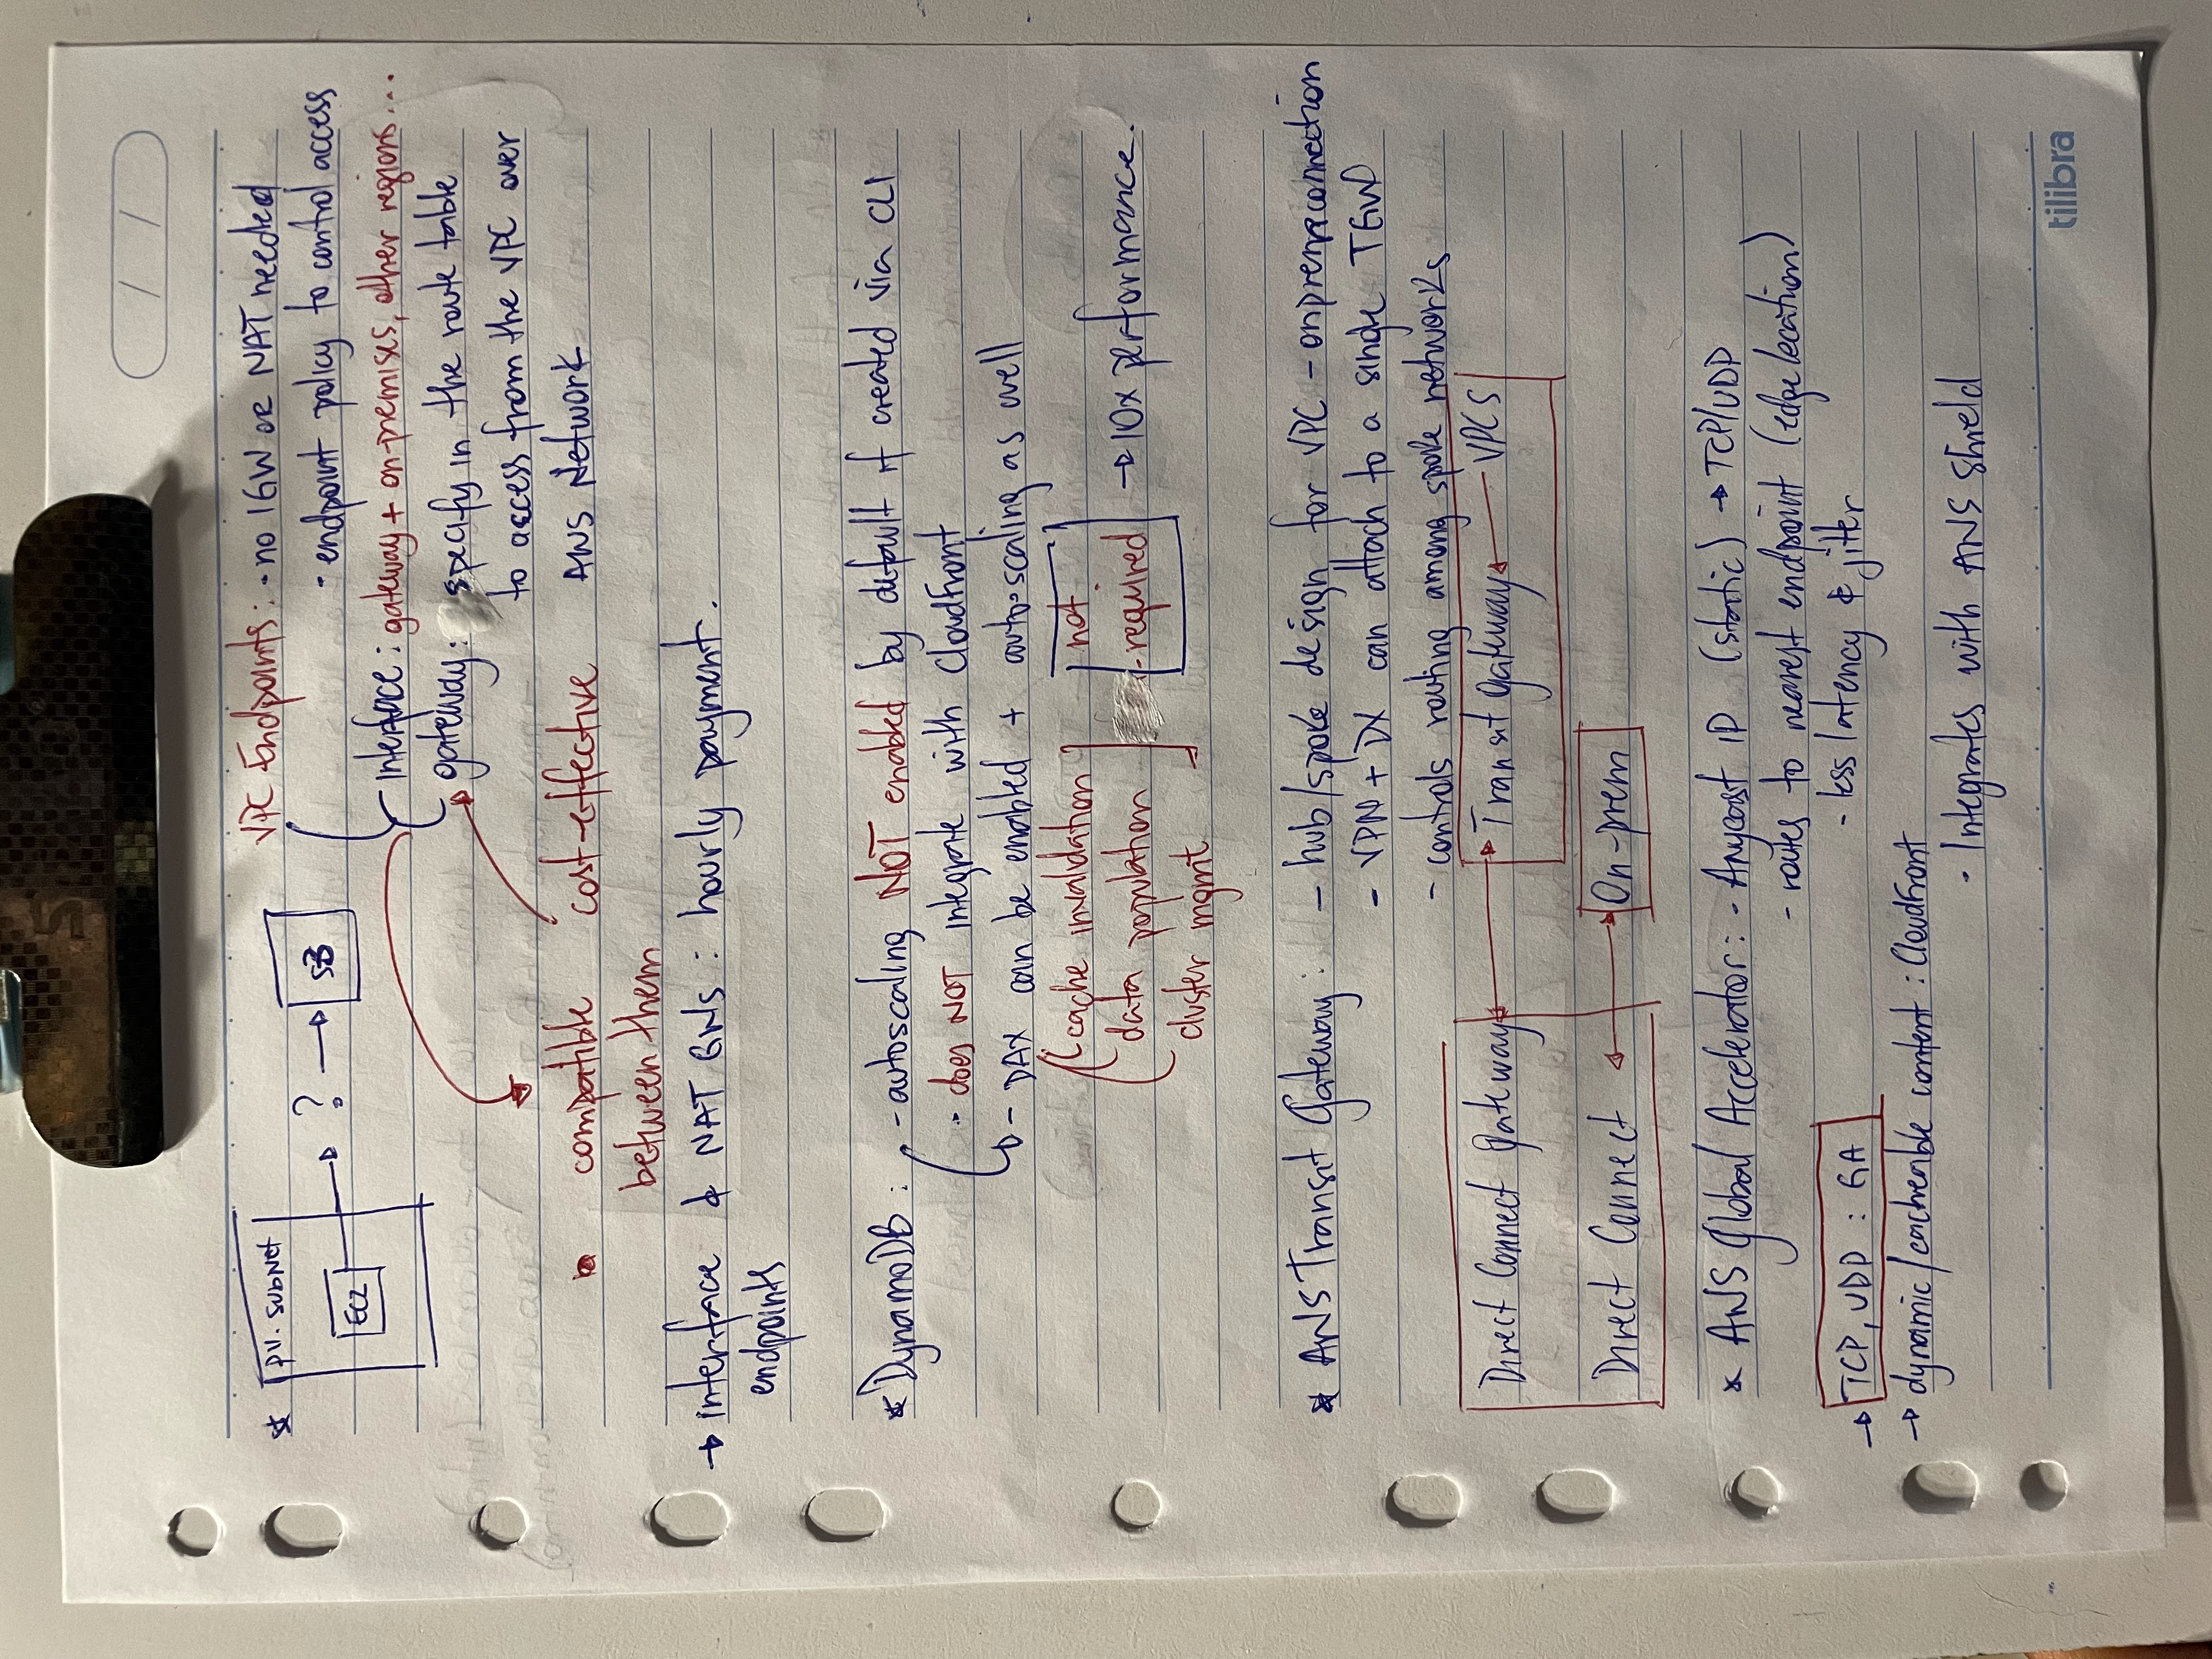 * pv. subnet
EC2 → ? → S3
VPC Endpoints: - no IGW or NAT needed
- endpoint policy to control access
interface: gateway + on-premises, other regions...
gateway: specify in the route table
to access from the VPC over
AWS Network
compatible
between them
cost-effective
→ interface & NAT GWs: hourly payment.
endpoints
* DynamoDB: - autoscaling NOT enabled by default if created via CLI
- does NOT integrate with CloudFront
- DAX can be enabled + auto-scaling as well
cache invalidation
data population
cluster mgmt
not
required
→ 10x performance.
* AWS Transit Gateway: - hub/spoke design for VPC - onprem connection
- VPN + DX can attach to a single TGW
- controls routing among spoke networks
Direct Connect Gateway ↔ Transit Gateway ← VPCS
Direct Connect ↔ On-prem
* AWS Global Accelerator: - Anycast IP (static) → TCP/UDP
- routes to nearest endpoint (edge location)
- less latency & jitter
→ TCP, UDP : GA
→ dynamic/cacheable content: CloudFront
- Integrates with AWS Shield
tilibra